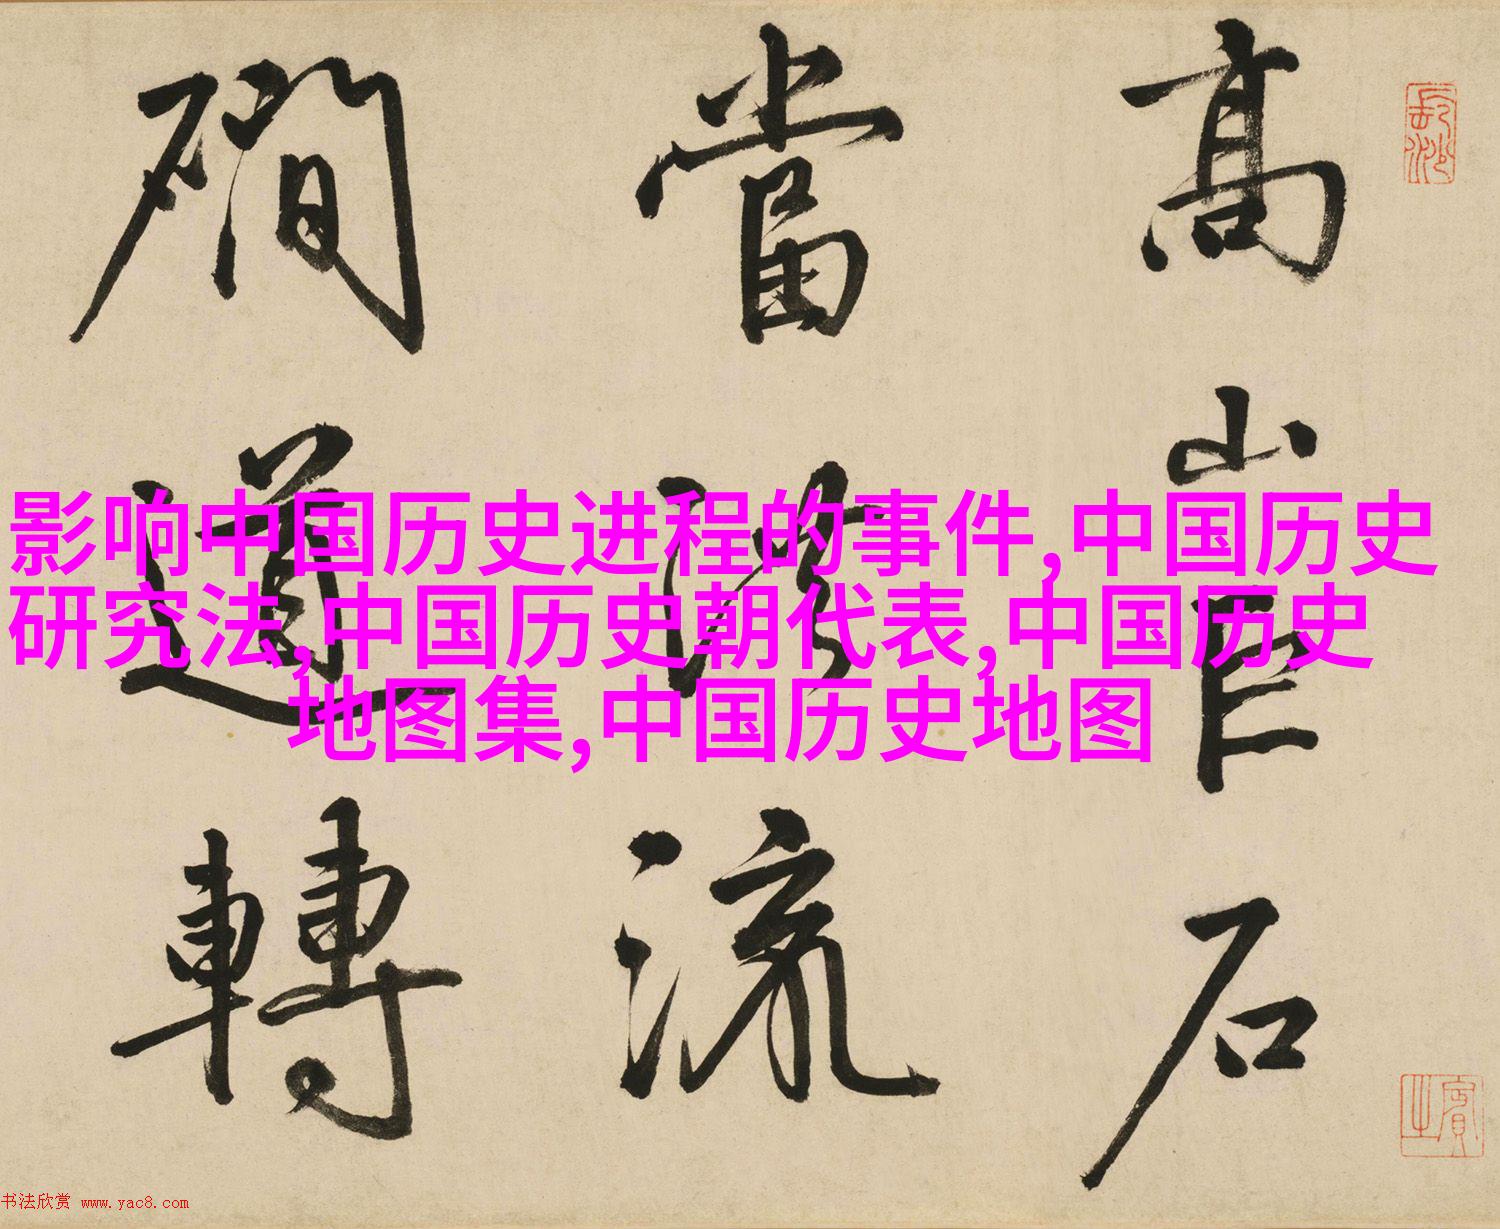 影响中国历史进程的事件,中国历史
研究法,中国历史朝代表,中国历史
地图集,中国历史地图
高山巨石
當流
磵道轉
長沙
賓之
书法欣赏 www.yac8.com